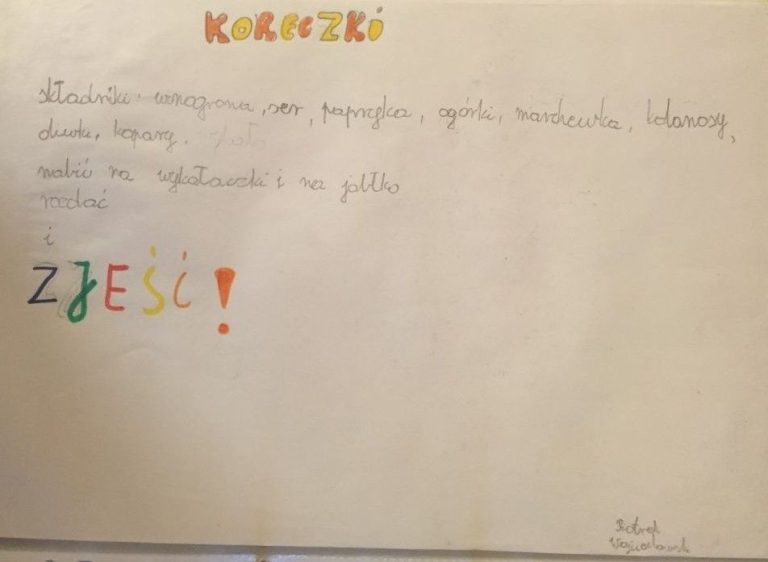 KORECZKI
składniki: winogrona, ser, papryka, ogórki, marchewka, kabanosy,
oliwki, kopary.
nabić na wykałaczki i na jabłko
rozdać
i
ZJEŚĆ!
Piotrek